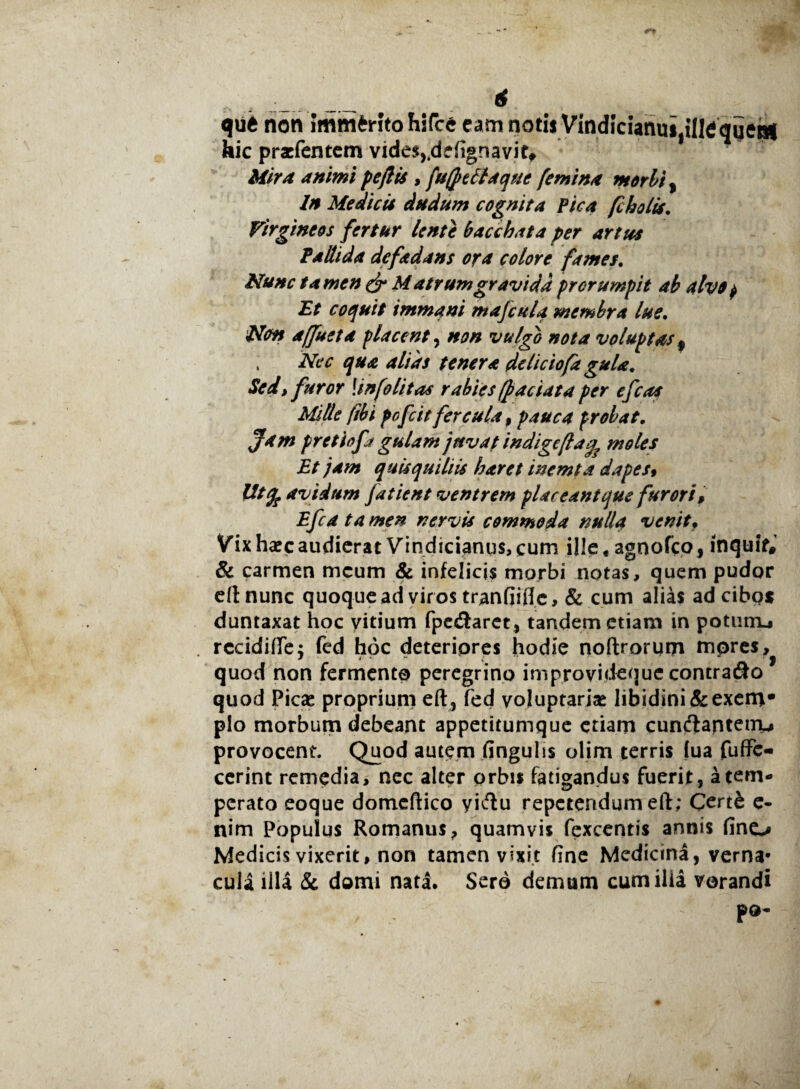 6
quê non immêrito hiſce eam notis Vindicianus, ille quem
hic præſentem vides, deſignavit,
Mira animi peſtis, ſuſpectaque femina morbi,
In Medicis dudum cognita Pica ſcholis.
Virgineos fertur lentè bacchata per artus
Pallida defædans ora colore fames.
Nunc tamen & Matrum gravidâ prorumpit ab alvo,
Et coquit immani maſcula membra lue.
Non aſſueta placent, non vulgò nota voluptas,
Nec qua aliàs teneræ delicioſa gulæ.
Sed, furor inſolitas rabies ſpaciata per eſcas
Mille ſibi poſcit fercula, pauca probat.
Jam pretioſa gulam juvat indigeſtaq; moles
Et jam quisquiliis hæret inemta dapes,
Utq; avidum ſatient ventrem placeantque furori,
Eſca tamen nervis commoda nulla venit,
Vix hæc audierat Vindicianus, cum ille, agnoſco, inquit,
& carmen meum & infelicis morbi notas, quem pudor
eſt nunc quoque ad viros tranſiiſſe, & cum aliàs ad cibos
duntaxat hoc vitium ſpectaret, tandem etiam in potum
recidiſſe; ſed hoc deteriores hodie noſtrorum mores,
quod non fermento peregrino improvideque contracto
quod Picæ proprium eſt, ſed voluptariæ libidini & exem-
plo morbum debeant appetitumque etiam cunctantem
provocent. Quod autem ſingulis olim terris ſua ſuffe-
cerint remedia, nec alter orbis fatigandus fuerit, à tem-
perato eoque domeſtico victu repetendum eſt; Certè e-
nim Populus Romanus, quamvis ſexcentis annis ſine
Medicis vixerit, non tamen vixit ſine Medicinâ, verna-
culâ illâ & domi natâ. Serò demum cum illâ vorandi
po-